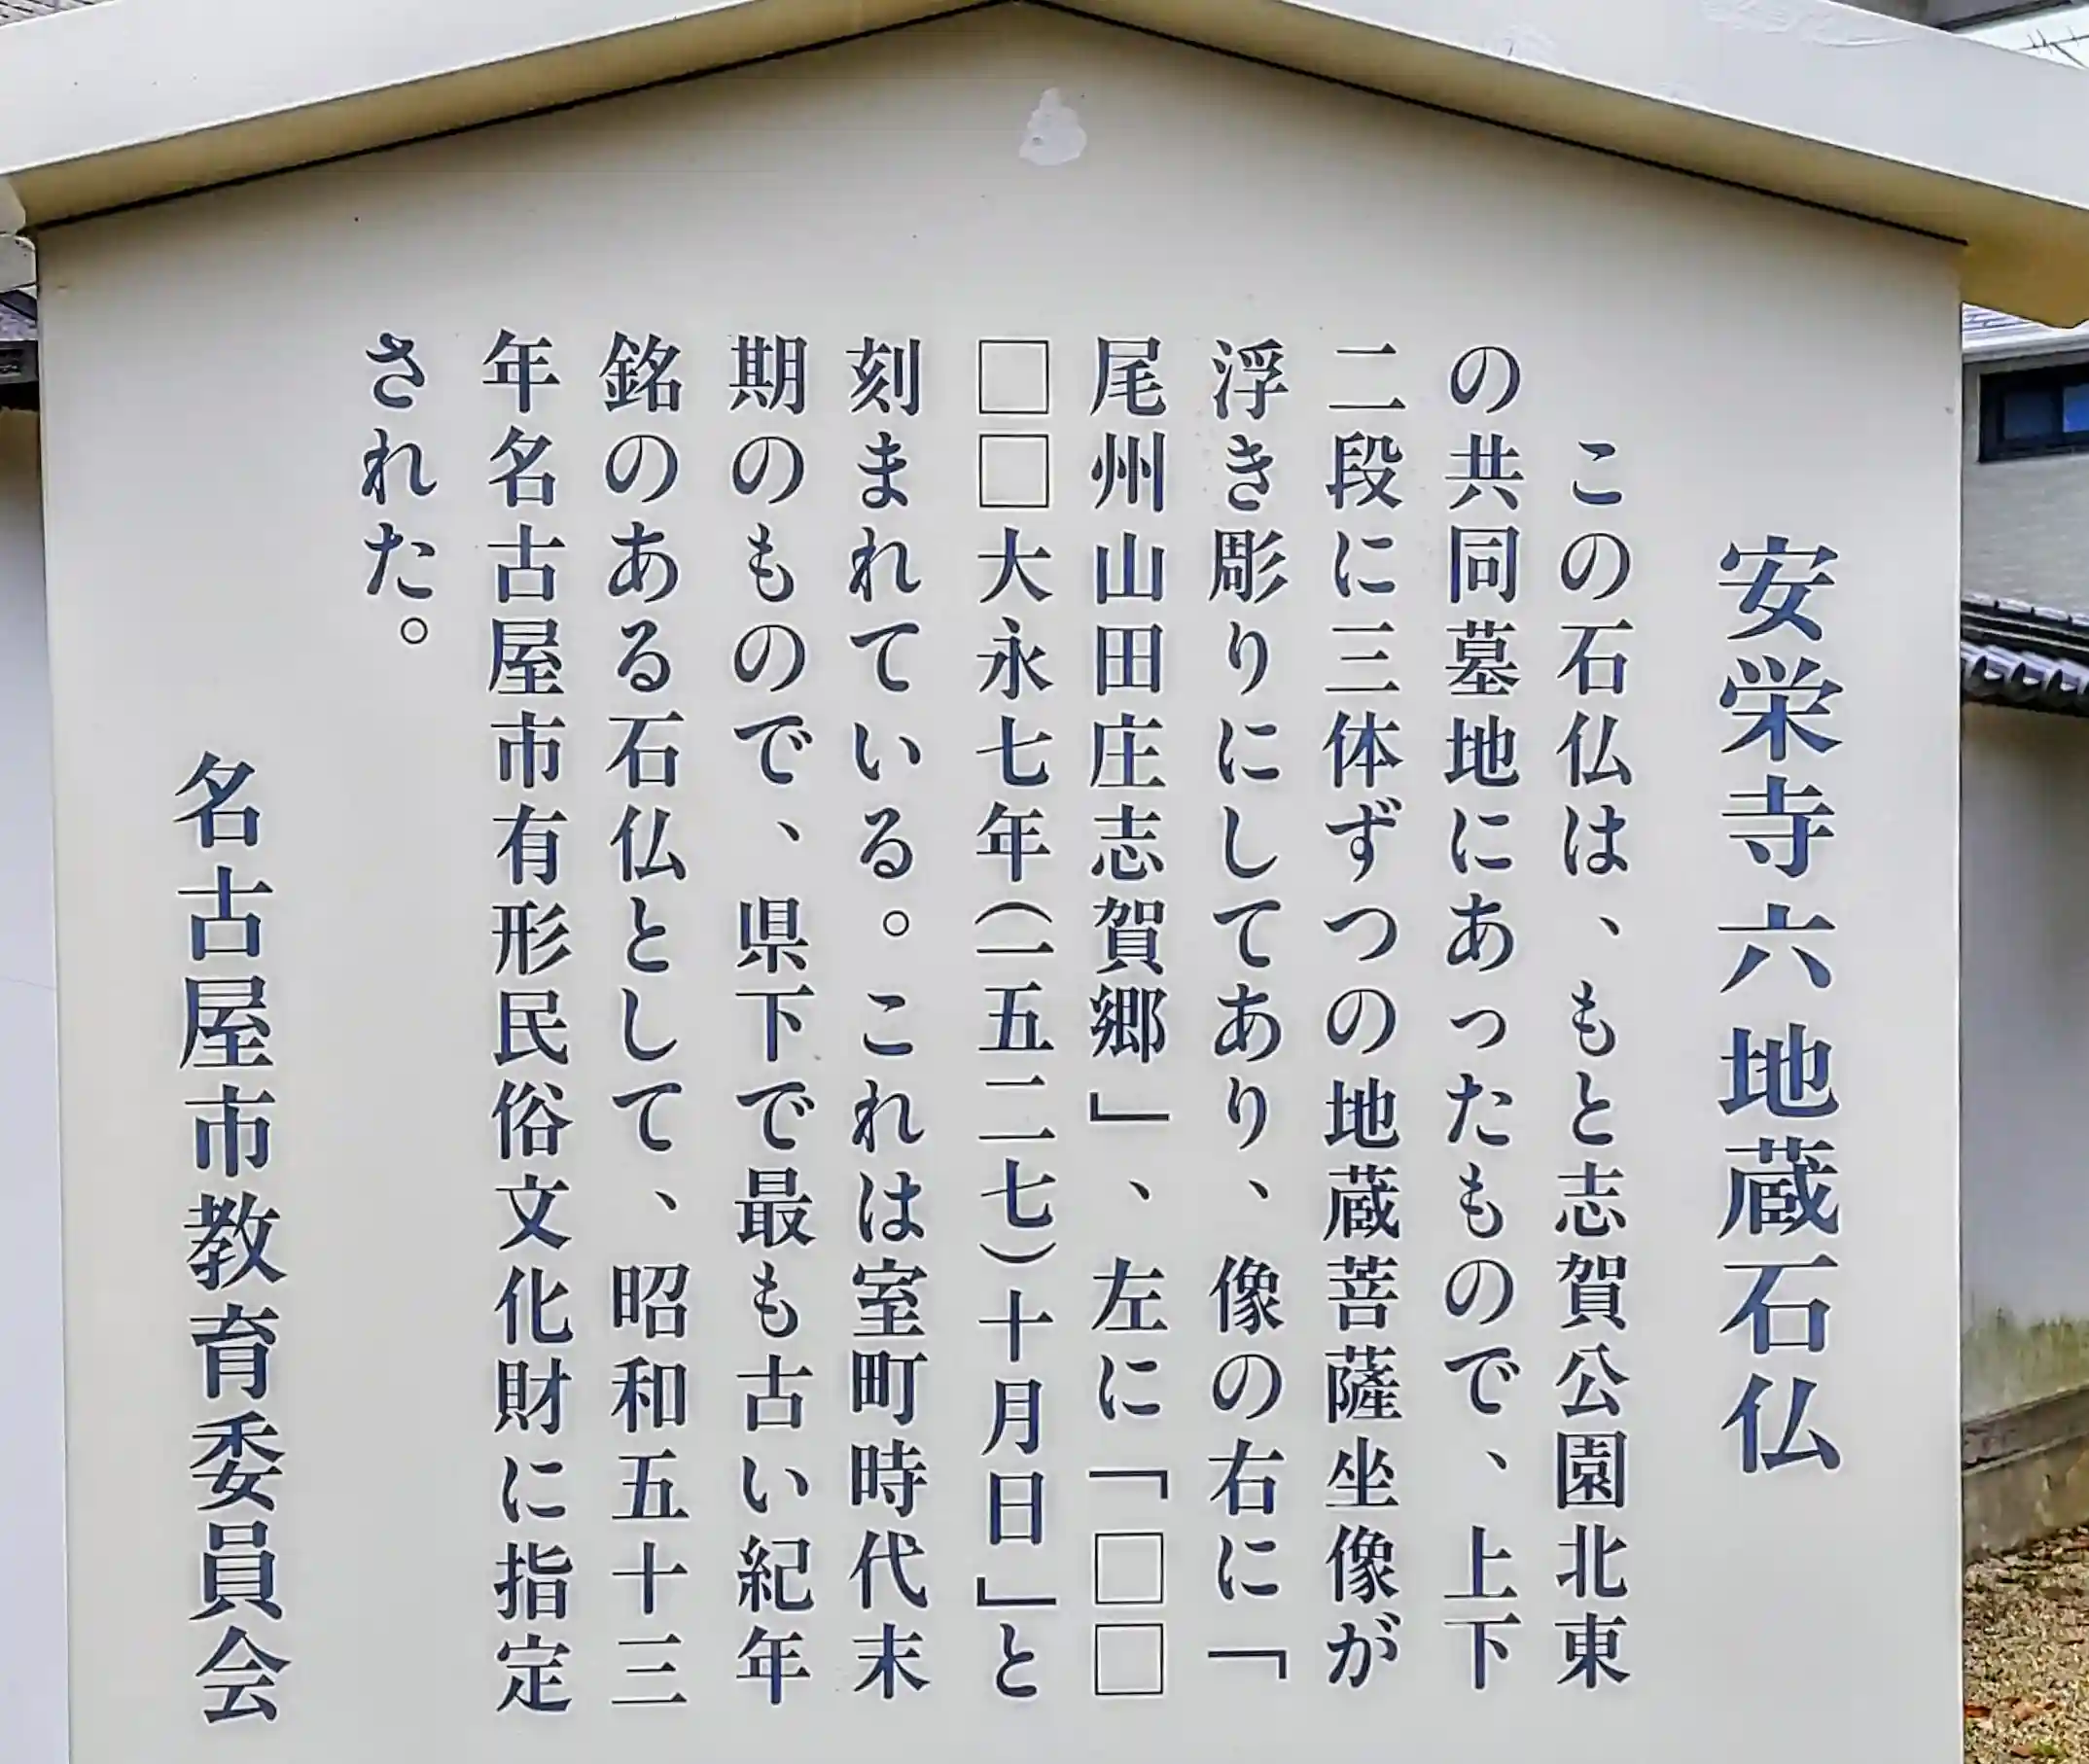 安栄寺六地蔵石仏
この石仏は、もと志賀公園北東
の共同墓地にあったもので、上下
二段に三体ずつの地蔵菩薩坐像が
浮き彫りにしてあり、像の右に「
尾州山田庄志賀郷」、左に「□□
□□大永七年(一五二七)十月日」と
刻まれている。これは室町時代末
期のもので、県下で最も古い紀年
銘のある石仏として、昭和五十三
年名古屋市有形民俗文化財に指定
された。
名古屋市教育委員会